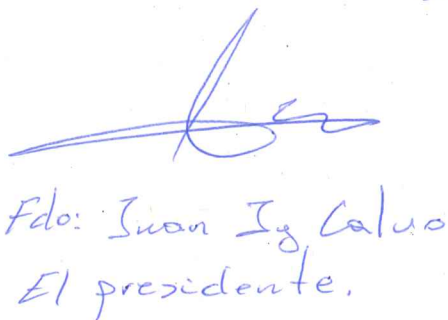 Fdo: Juan Ig Calvo
El presidente.